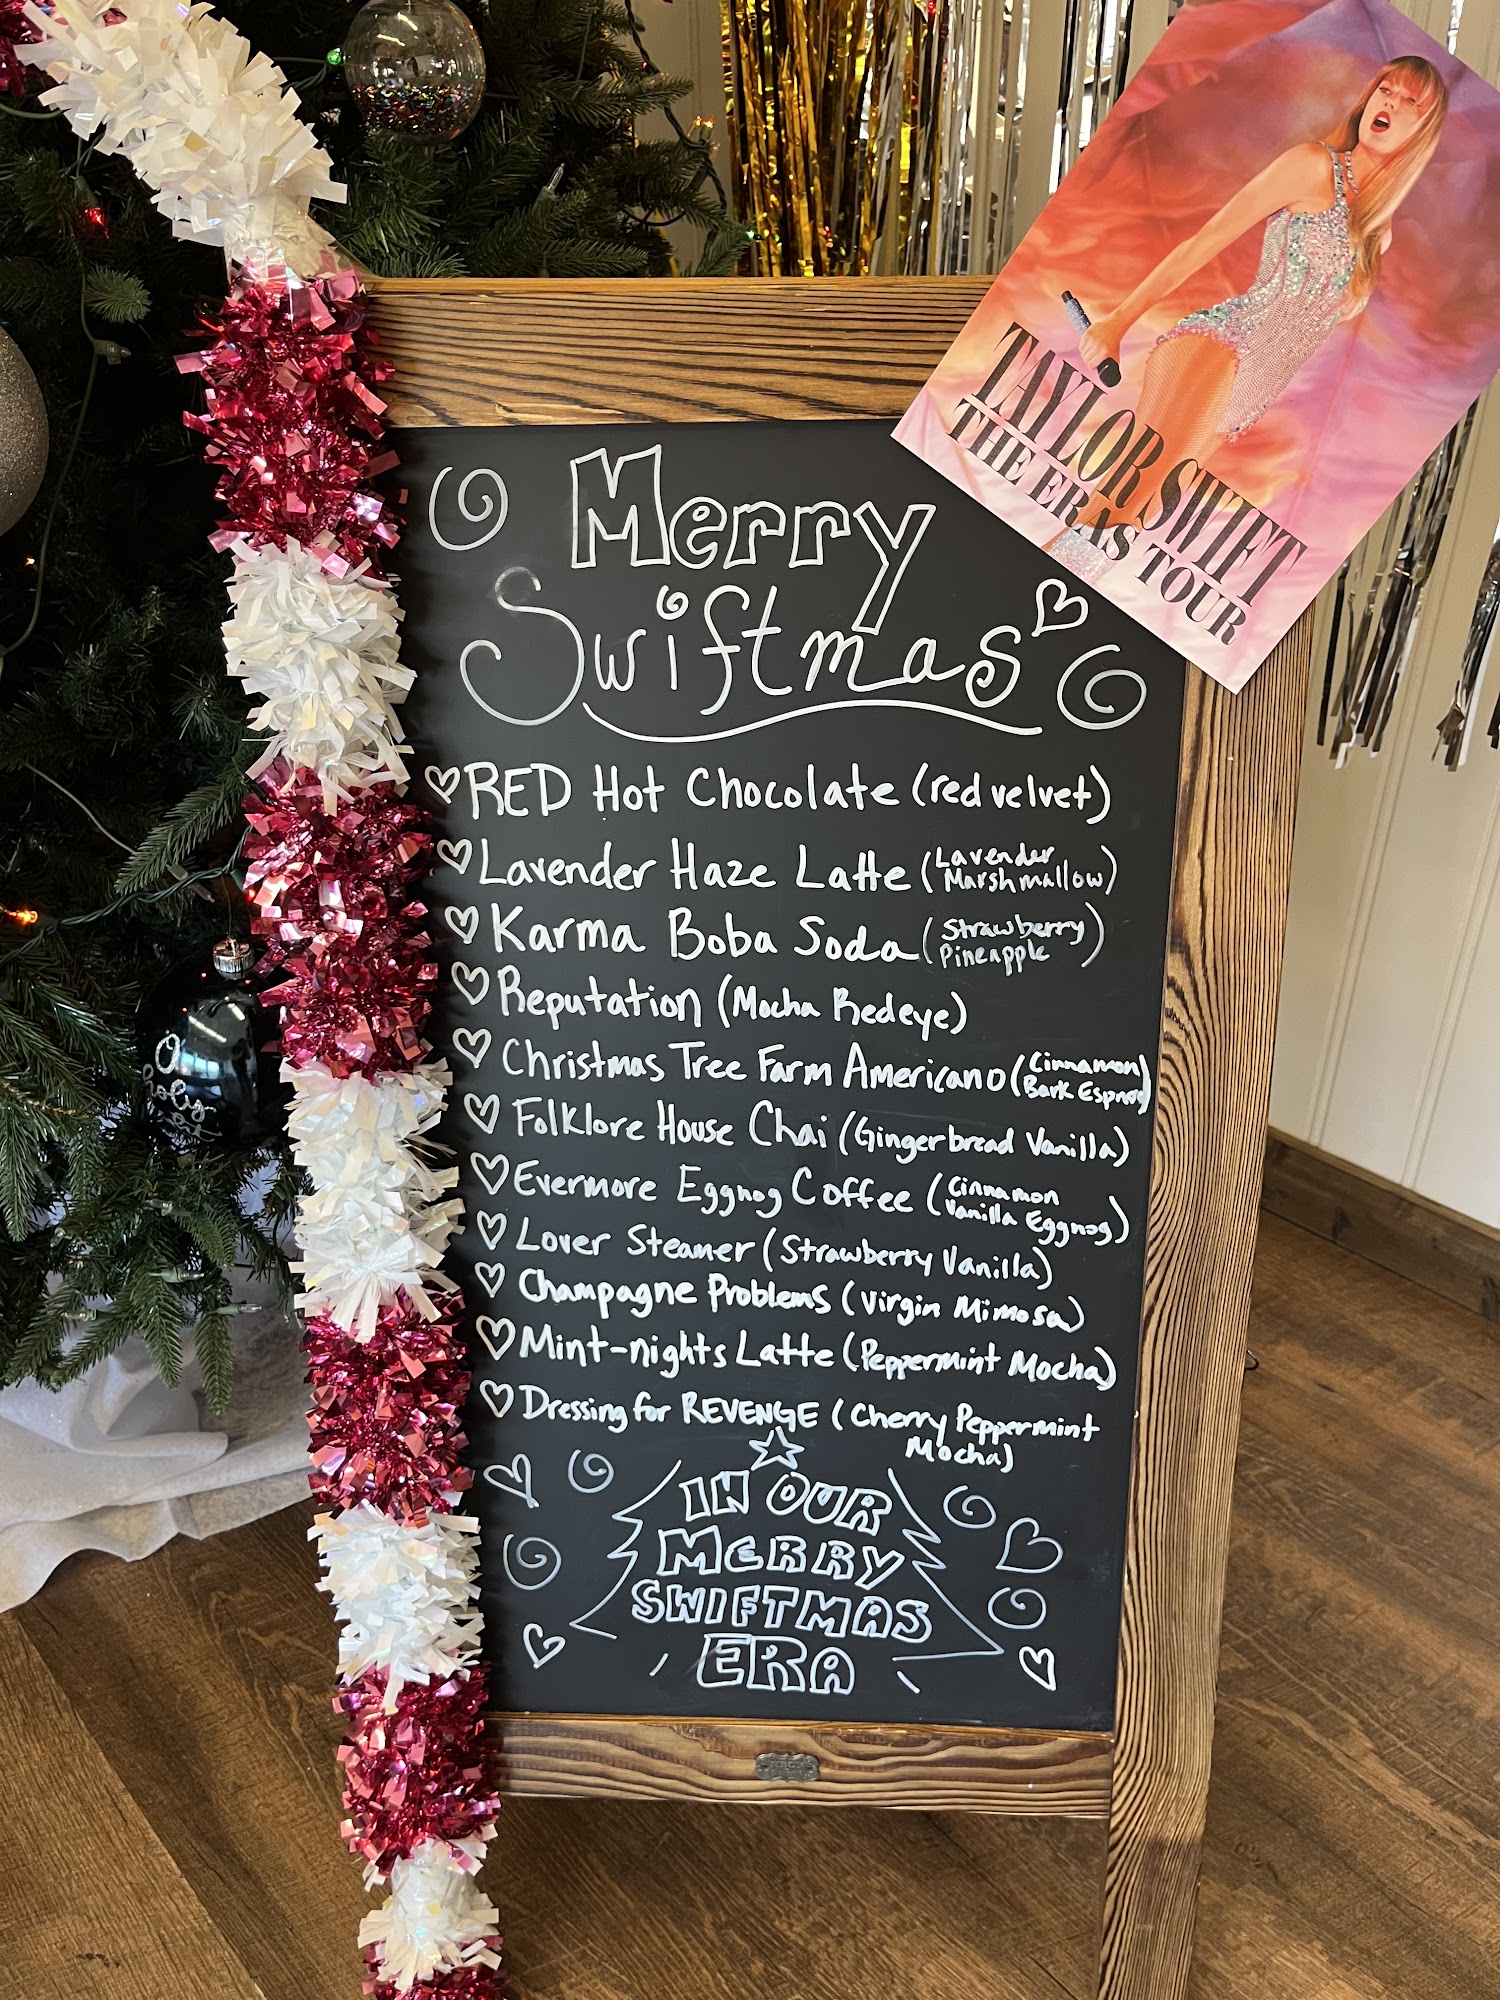 TAYLOR SWIFT
THE ERAS TOUR
Merry
Swiftmas
RED Hot Chocolate (red velvet)
Lavender Haze Latte (Lavender
Marshmallow)
Karma Boba Soda (Strawberry
Pineapple)
Reputation (Mocha Redeye)
Christmas Tree Farm Americano (Cinnamon
Bark Espros)
Folklore House Chai (Gingerbread Vanilla)
Evermore Eggnog Coffee (Cinnamon
Vanilla Eggnog)
Lover Steamer (Strawberry Vanilla)
Champagne Problems (Virgin Mimosa)
Mint-nights Latte (Peppermint Mocha)
Dressing for REVENGE (Cherry Peppermint
Mocha)
IN OUR
MERRY
SWIFTMAS
ERA
O
holy